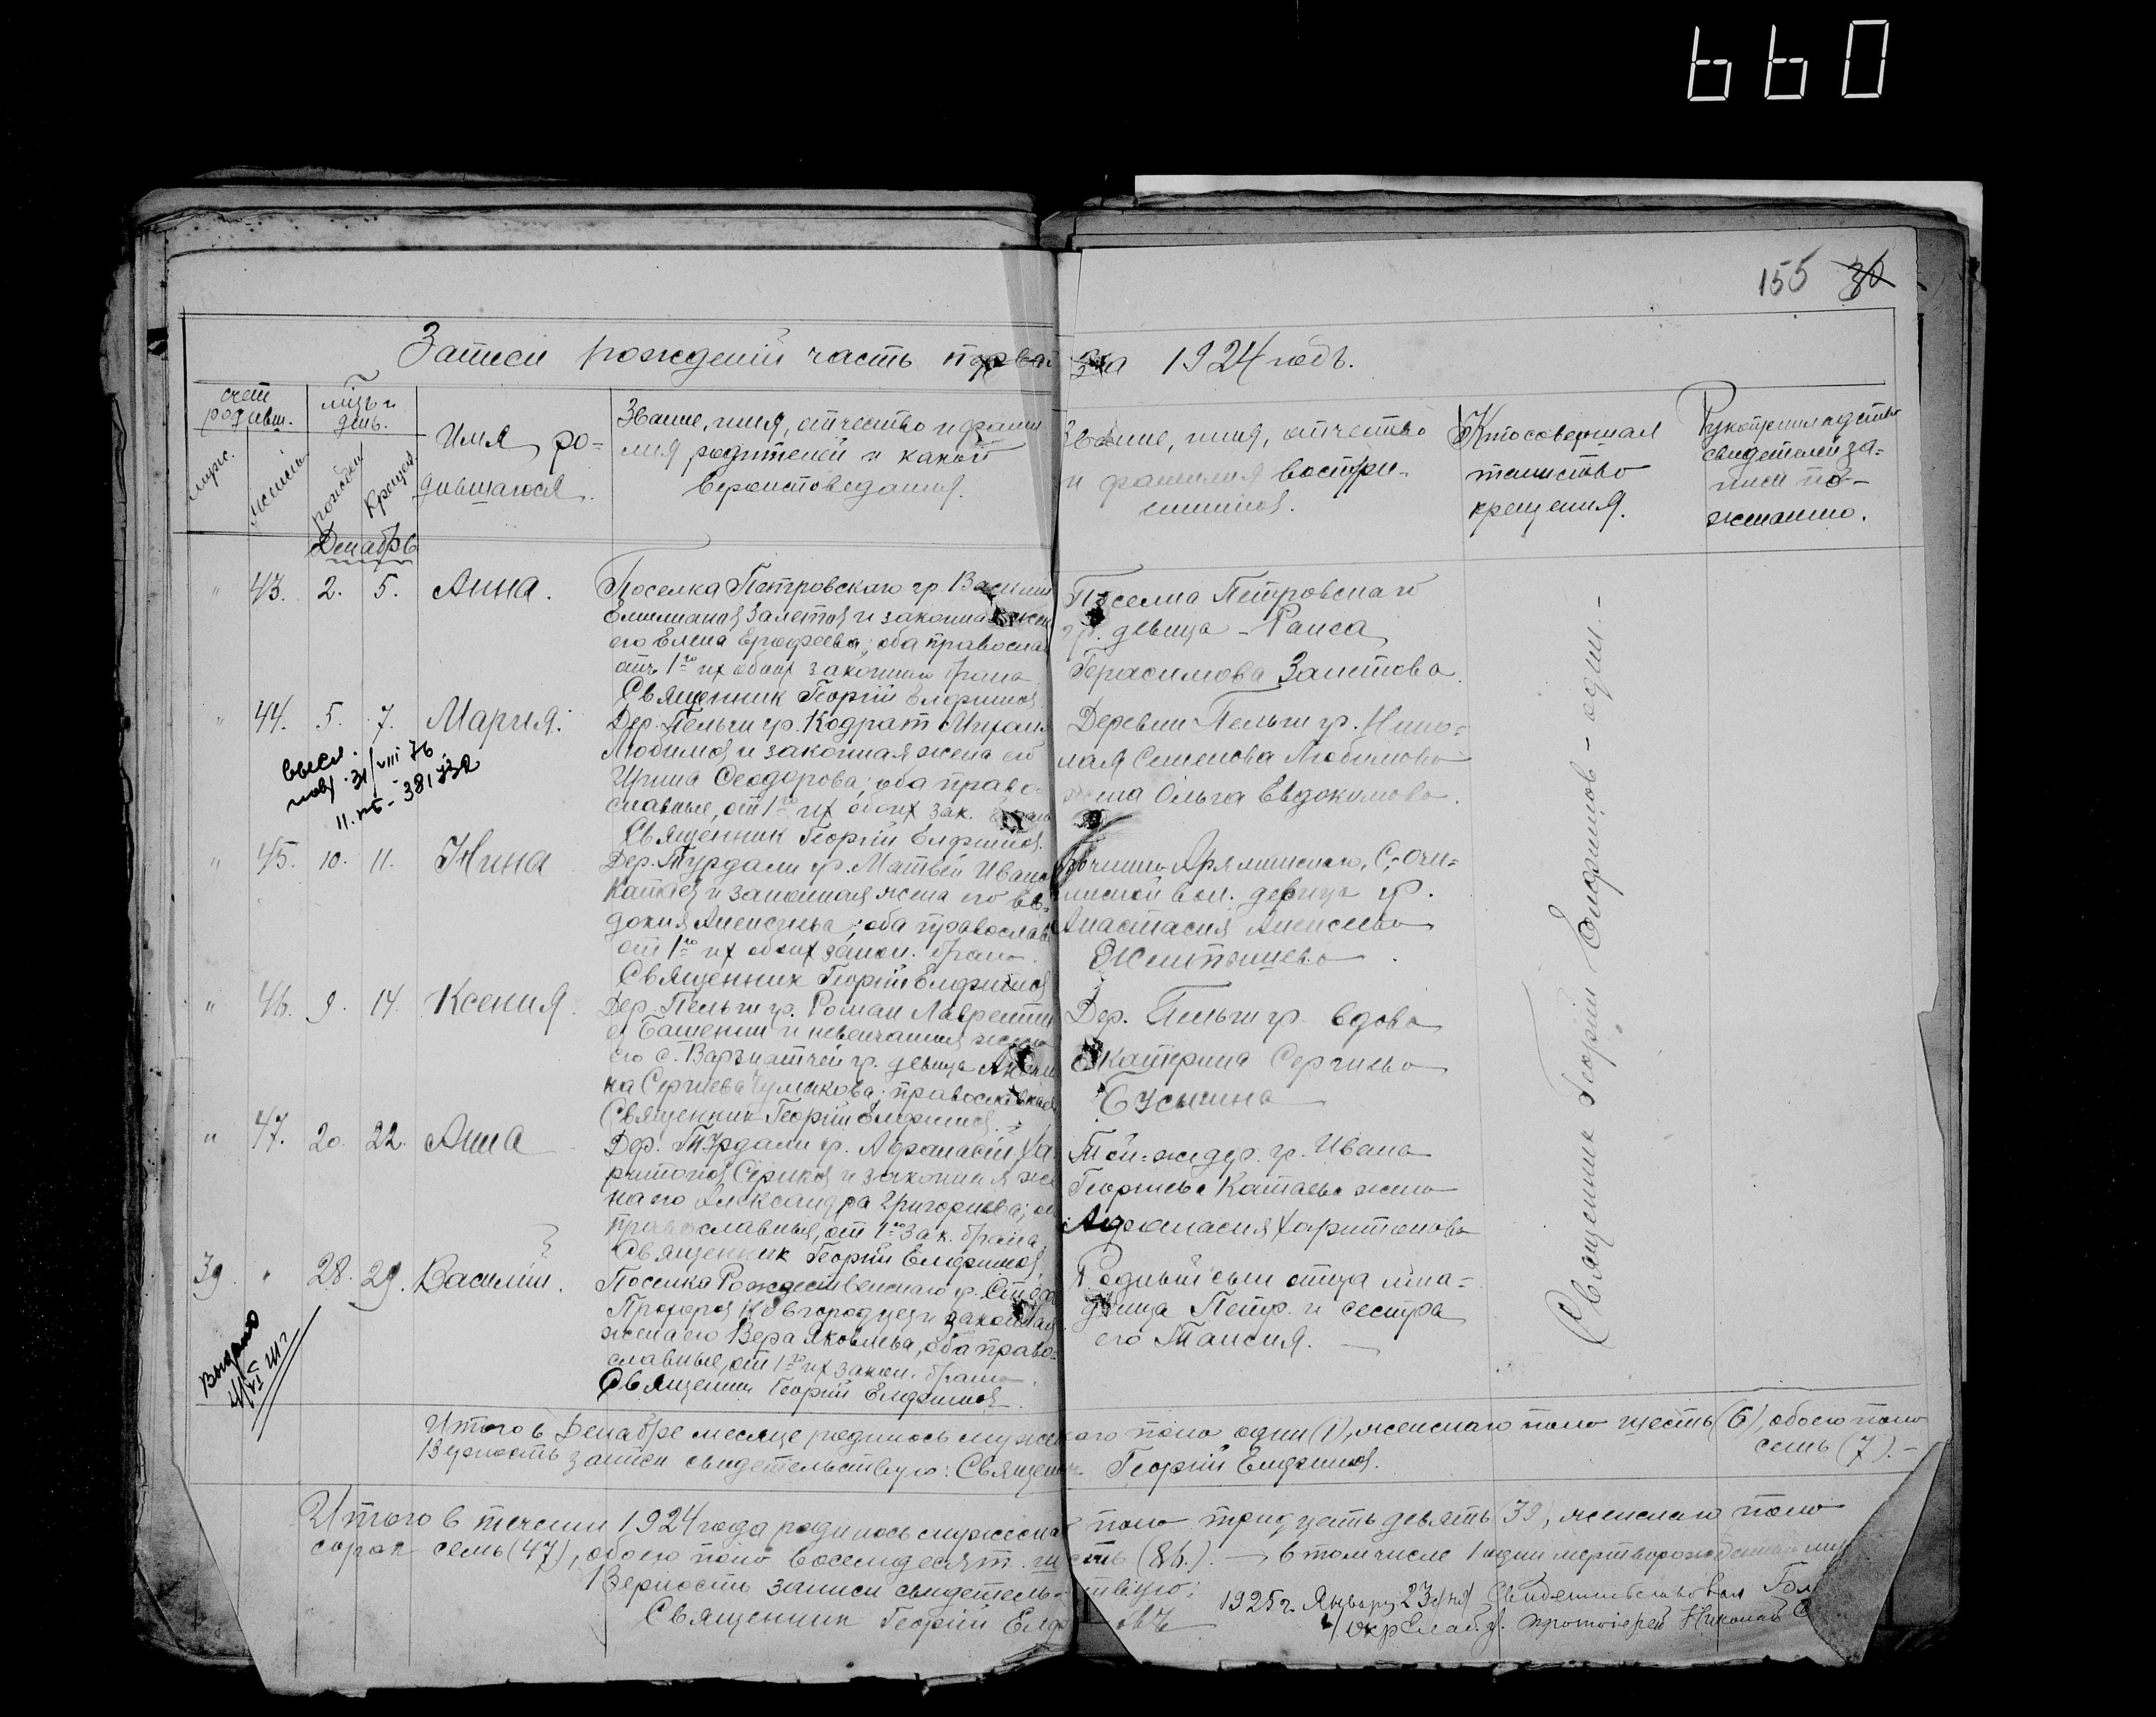 660
155 30
Записи рождений часть первая за 1924 годъ.
счет родивш.
муж.
женск.
мцъ и день.
рожден
крещен
Имя родившагося.
Звание, имя, отчество и фамилия родителей и какого вероисповедания.
Звание, имя, отчество и фамилия восприемников.
Кто совершал таинство крещения.
Рукоприкладство свидетелей записи по желанию.
Декабрь
" 43. 2. 5. Анна.
Поселка Петровского гр. Василий
Емилианов Залетов и законная жен
его Елена Ерофеева; оба православ
отъ 1го их обоих законнаго брака
Священник Георгий Елфимов
Поселка Петровскаго
гр. девица - Раиса
Герасимова Залетова.
" 44. 5. 7. Мария.
31/VIII 76
381732
Дер. Пельги гр. Кодрат Михаил
Любимов и законная жена его
Ирина Феодорова; оба право-
славные, от 1го их обоих зак. брака
Священник Георгий Елфимов.
Деревни Пельги гр. Нико-
лая Семенова Любимова
жена Ольга Евдокимова.
" 45. 10. 11. Нина
Дер. Турдали гр. Матвей Ивано
Катаев и законная жена его Ев-
докия Алексеева; оба православ
от 1го их обоих закон. брака.
Священник Георгий Елфимов
вол. девица гр.
Анастасия Алексеева
" 46. 9. 14. Ксения.
Дер. Пельги гр. Роман Лаврентии
ев и невенчанная жена
его с. гр. девица
на Сергиева Чумакова; православная
Священник Георгий Елфимов.
Дер. Пельги гр. вдова
Екатерина Сергиева
" 47. 20. 22. Анна
Дер. Турдали гр. Афанасий Ха-
ритонов Серков и законная же
на его Александра Григориева; об
православныя, от 1го зак. брака
Священник Георгий Елфимов
Той-же дер. гр. Ивана
Георгиева Катаева жена
Афанасия Харитонова
39. " 28. 29. Василий.
Выдано
Поселка Рождественскаго гр.
Прохоров Новгородцев и законная
жена его Вера Яковлева, оба право-
славные, от 1го их закон. брака.
Священник Георгий Елфимов
Родный сын отца мла-
денца Петр. и сестра
его Таисия.
Священник Георгий Елфимов - один. -
Итого в Декабре месяце родилось мужскаго пола один (1), женскаго пола шесть (6), обоего пола
семь (7). -
Верность записи свидетельствую: Священн. Георгий Елфимов.
Итого в течении 1924 года родилось мужскаго пола тридцать девять (39), женскаго пола
сорок семь (47), обоего пола восемьдесят шесть (86.). - в том числе 1 один мертворожденный
Верность записи свидетельствую:
Священник Георгий Елфимовъ
1925 г. Января 23 дня Свидетельствовал
протоіерей Николай